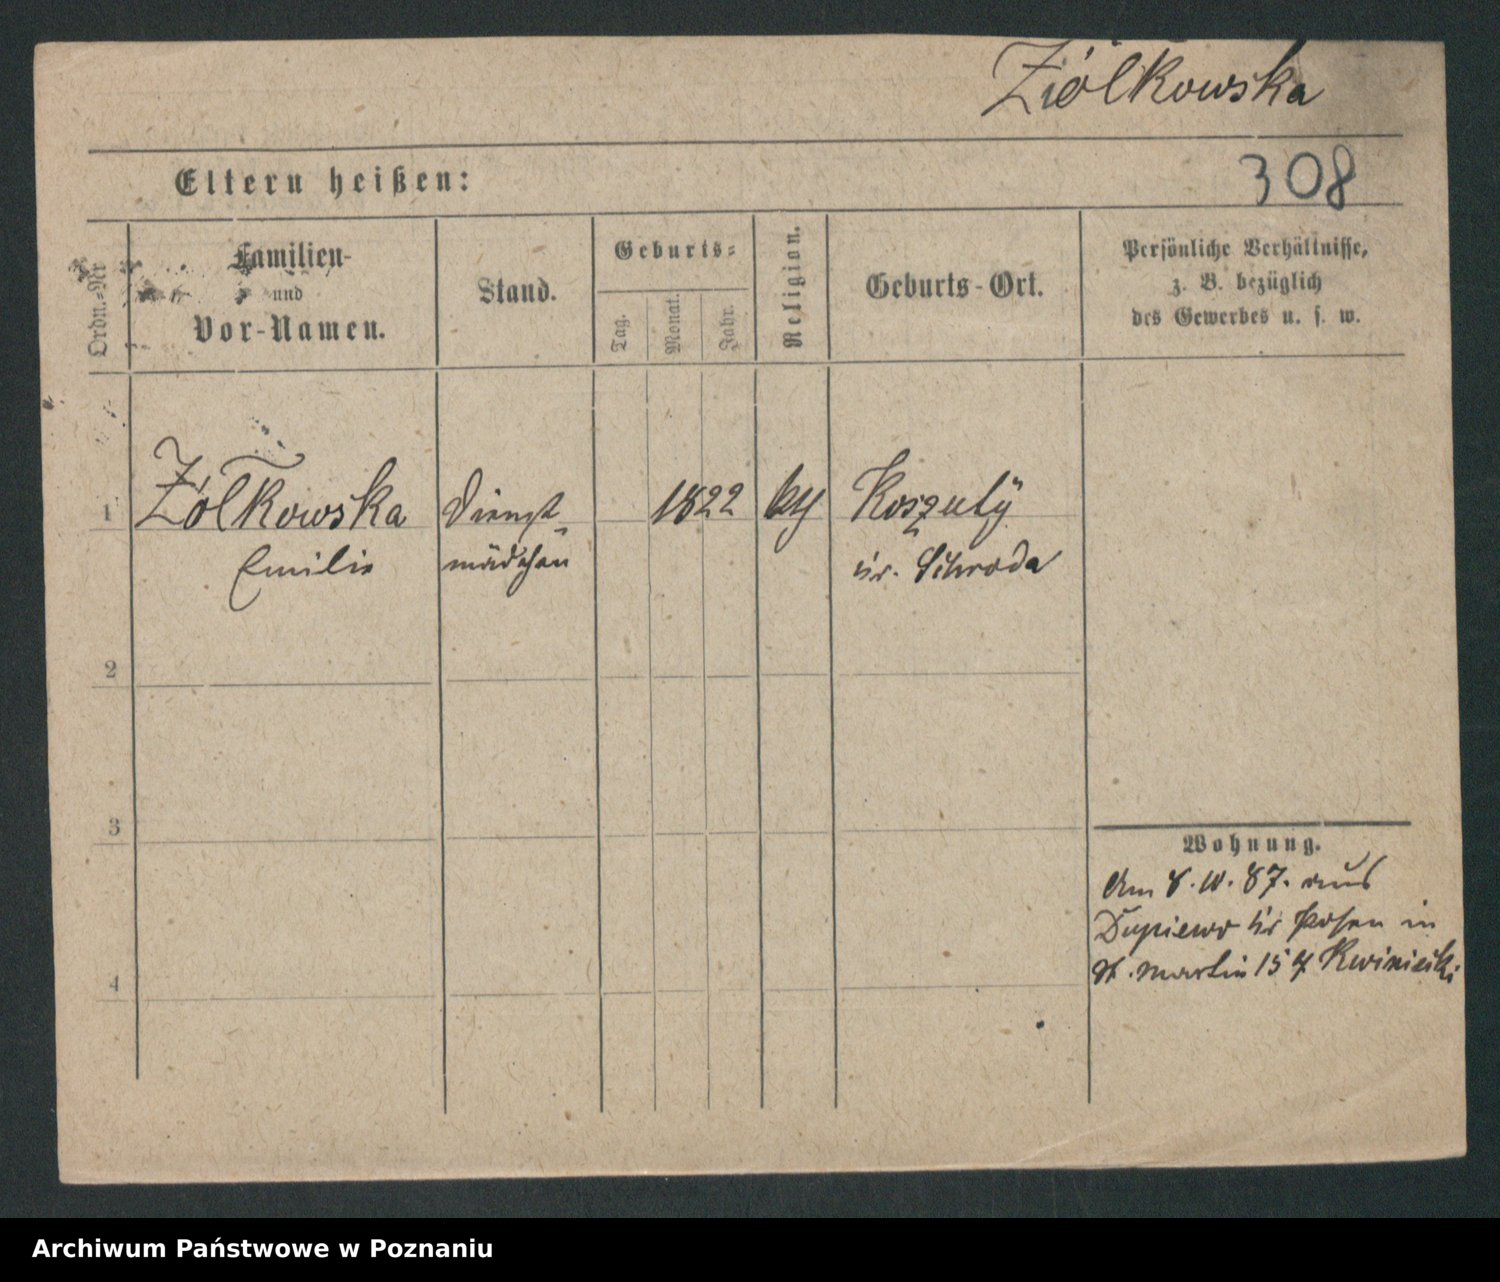 Ziólkowska
308
Eltern heißen:
Ordn.-Nr
Familien-
und
Vor-Namen.
Stand.
Geburts-
Tag.
Monat.
Jahr.
Religion.
Geburts-Ort.
Persönliche Verhältnisse,
z. B. bezüglich
des Gewerbes u. s. w.
1
Ziólkowska
Dienst-
1822
Koszuty
Emilie
mädchen
Kr. Schroda
2
3
4
Wohnung.
Am 8. 10. 87. aus
Dupiewo Kr Posen in
St. Martin 15
Archiwum Państwowe w Poznaniu